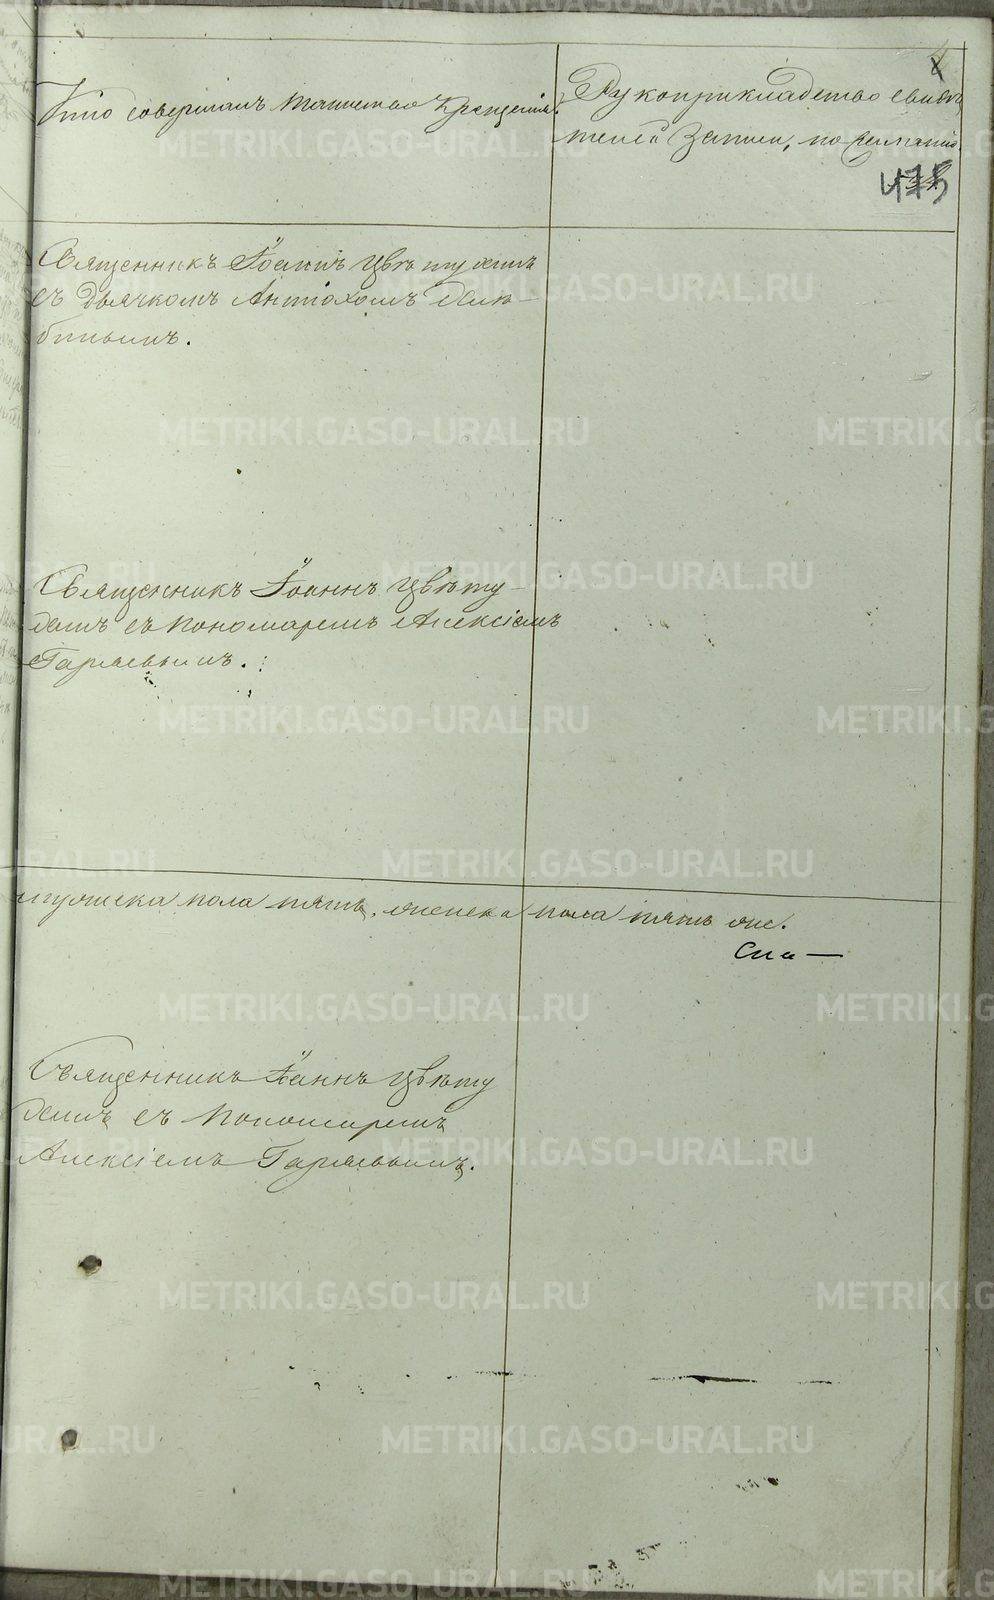 4
Кто совершалъ таинство крещенія.
Рукоприкладство свидѣ
телей записи, по желанію
475
Священникъ Іоаннъ Цвѣтухинъ
съ дьячкомъ Антіохомъ
бинымъ.
Священникъ Іоаннъ Цвѣту-
хинъ съ пономаремъ Алексіемъ
Гаряевымъ.
мужеска пола пять, женска пола пять же.
Сиа —
Священникъ Іоаннъ Цвѣту
хинъ съ пономаремъ
Алексіемъ Гаряевымъ.
METRIKI.GASO-URAL.RU